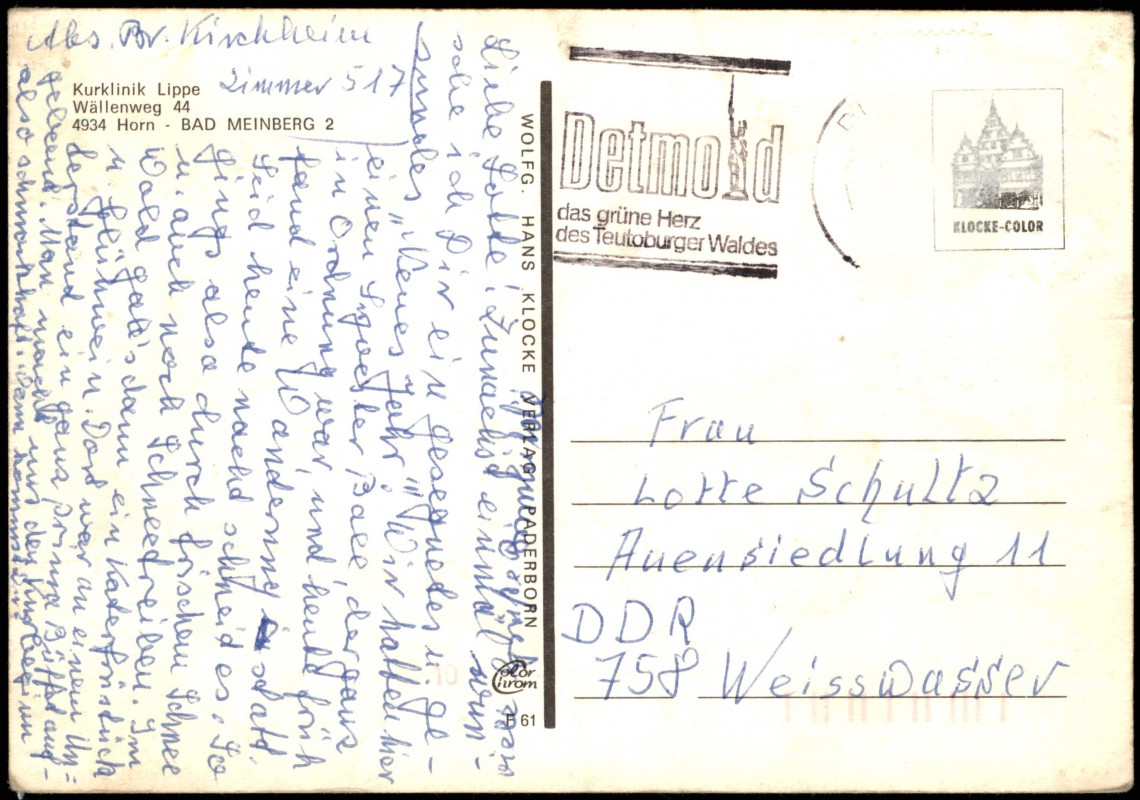 Abs. Br. Kirchheim
Zimmer 517
Kurklinik Lippe
Wällenweg 44
4934 Horn - BAD MEINBERG 2
Liebe Lotte! Zunaechst einmal wün-
sche ich Dir ein gesegnetes u. ge-
sundes "Neues Jahr". Wir hatten hier
einen Sylvester Ball der ganz
in Ordnung war, und heute früh
fand eine Wanderung statt.
Seid heute nacht schneid es. So
gings also durch frischen Schnee
u. auch noch Schneetreiben. Im
Wald gab's dann ein Katerfrüstück
u. Glühwein. Dort war an einem Un=
terstand ein ganz prima Büffet auf-
gebaut. Man macht uns den Kurbeginn
also schmackhaft. Dann kommt
WOLFG. HANS KLOCKE VERLAG PADERBORN
Color
Chrom
F 61
Detmold
das grüne Herz
des Teutoburger Waldes
KLOCKE-COLOR
Frau
Lotte Schultz
Auensiedlung 11
DDR
758 Weisswasser